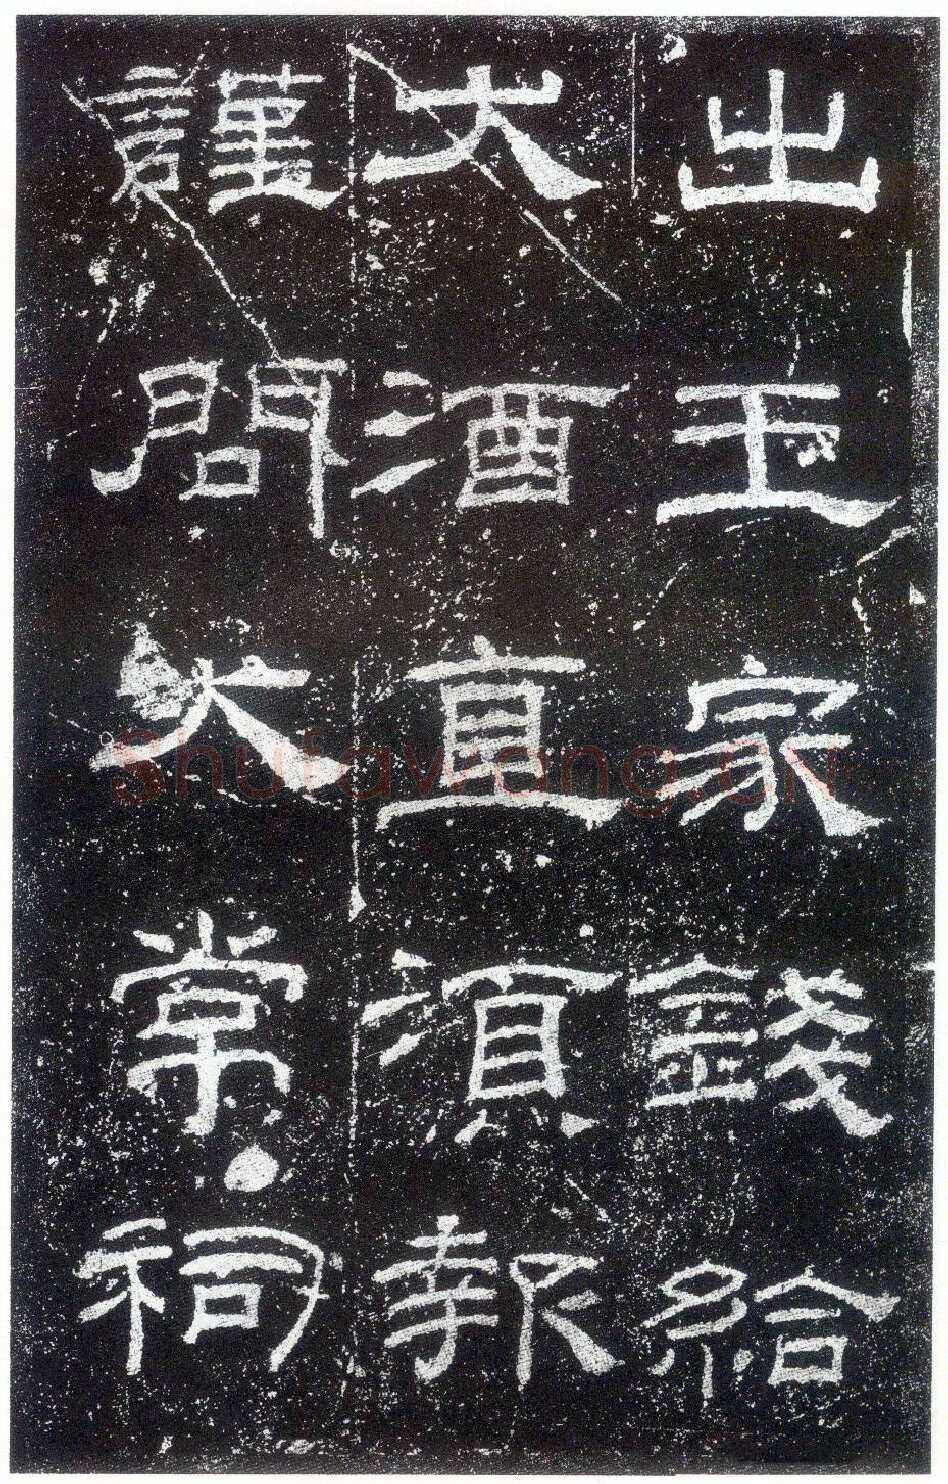 出王家錢給
犬酒直須報
謹問大常祠
Shufawang.CN